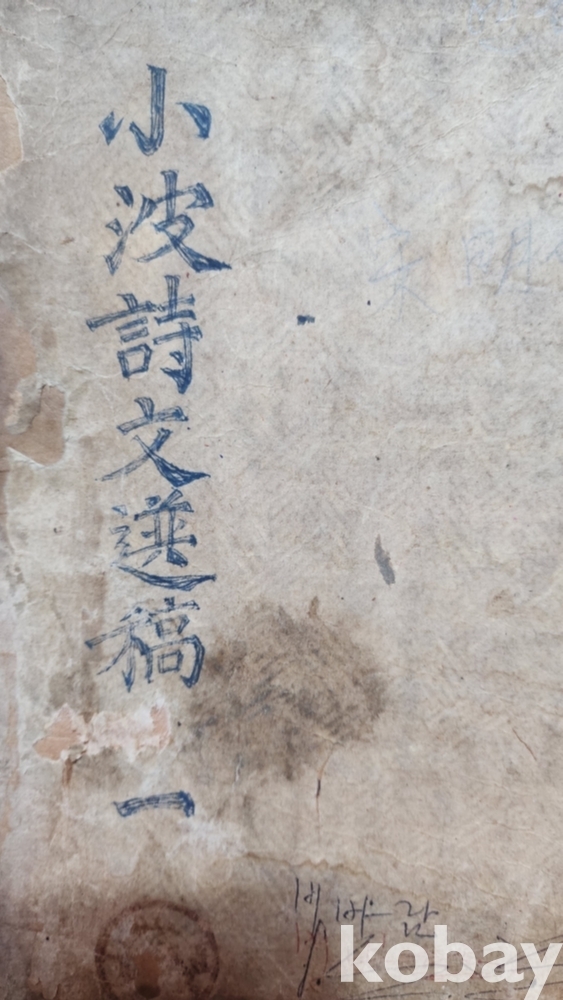 小波詩文選稿 一
kobay